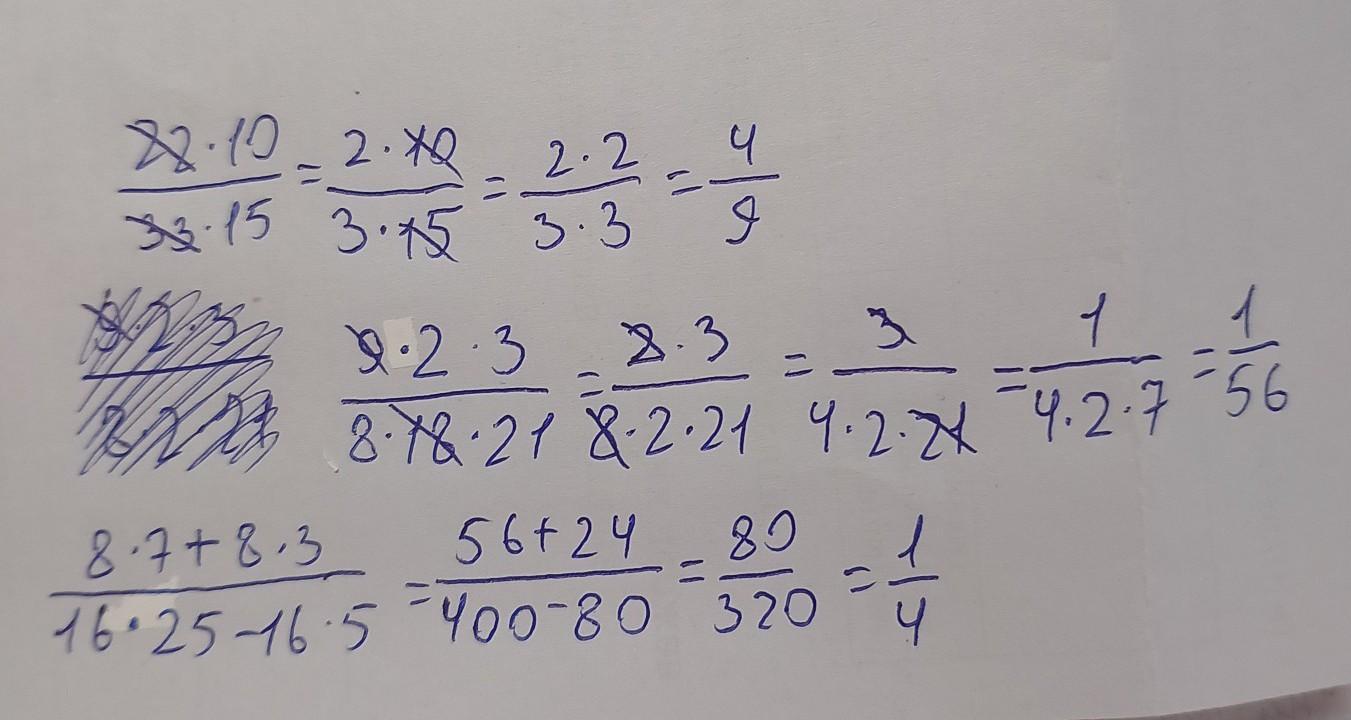 22·10/33·15 = 2·10/3·15 = 2·2/3·3 = 4/9
9·2·3/8·18·21 = 2·3/8·2·21 = 3/4·2·21 = 1/4·2·7 = 1/56
8·7+8·3/16·25-16·5 = 56+24/400-80 = 80/320 = 1/4